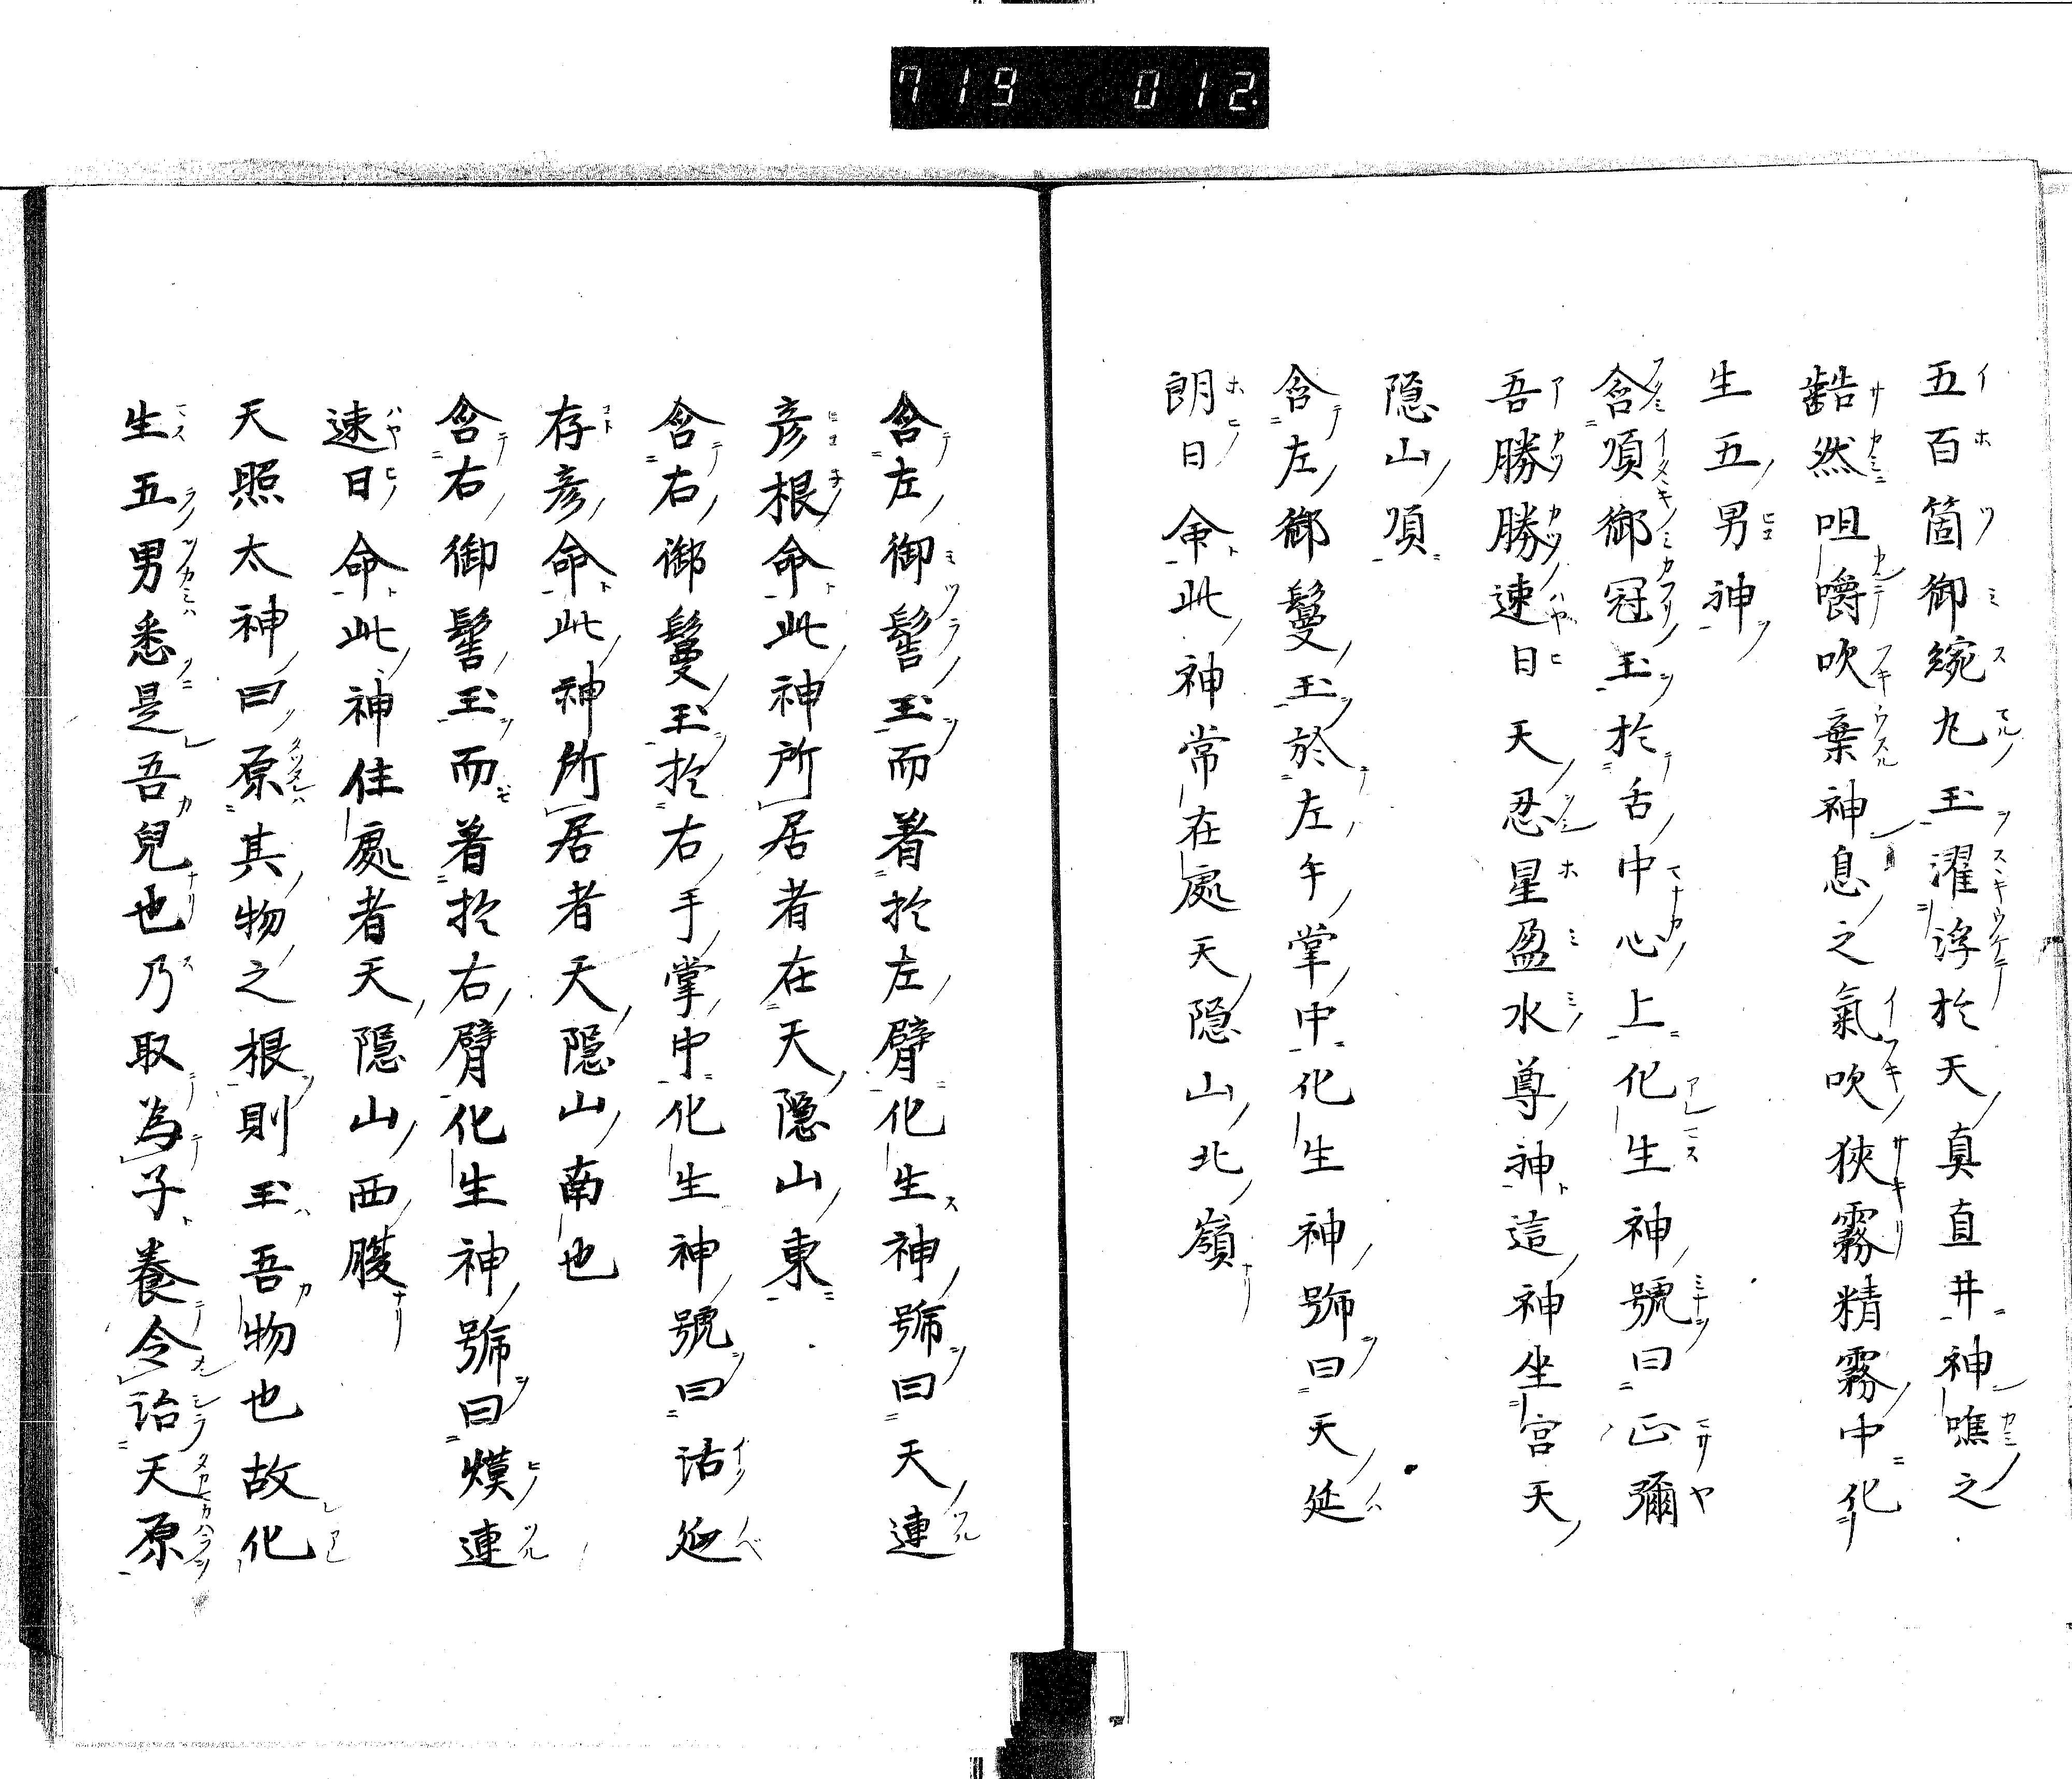 719 012.
五百箇御綩丸玉濯浮於天真直井神噍之
齰然咀嚼吹棄神息之氣吹狹霧精霧中化
生五男神
含頂御冠玉於舌中心上化生神號曰正彌
吾勝勝速日天忍星盈水尊神這神坐宮天
隐山頂
含左御鬘玉於左手掌中化生神號曰天延
朗日命此神常在處天隐山北嶺
含左御髻玉而着於左臂化生神號曰天連
彦根命此神所居者在天隠山東
含右御鬘玉於右手掌中化生神號曰活延
存彦命此神所居者天隠山南也
含右御髻玉而着於右臂化生神號曰熯連
速日命此神住處者天隠山西腰
天照太神曰原其物之根則玉吾物也故化
生五男悉是吾兒也乃取為子養令詒天原